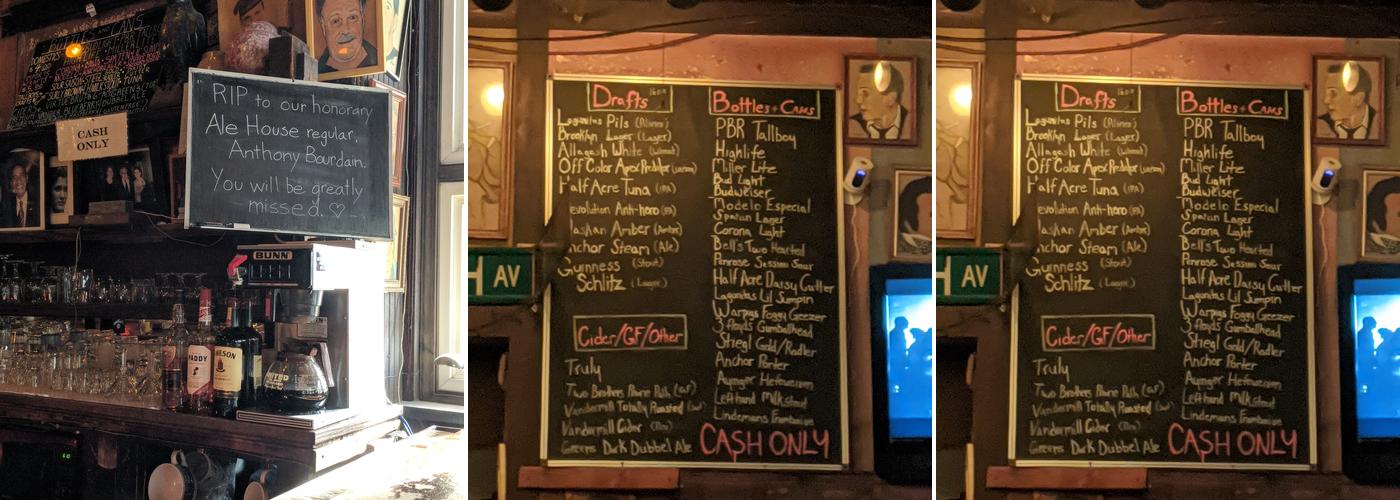 BOTTLES AND CANS
DOMESTICS
CASH
ONLY
RIP to our honorary
Ale House regular,
Anthony Bourdain.
You will be greatly
missed. ♡
BUNN
PADDY
H AV
Drafts
Lagunitas Pils
Brooklyn Lager (Lager)
Allagash White
Off Color Apex Predator
Half Acre Tuna (IPA)
evolution Anti-hero (IPA)
laskan Amber (Amber)
nchor Steam (Ale)
Guinness (Stout)
Schlitz (Lager)
Cider/GF/Other
Truly
Two Brothers Prairie Path (GF)
Vandermill Totally Roasted
Vandermill Cider
Greens Dark Dubbel Ale
Bottles + Cans
PBR Tallboy
Highlife
Miller Lite
Bud Light
Budweiser
Modelo Especial
Spartan Lager
Corona Light
Bell's Two Hearted
Penrose Session Sour
Half Acre Daisy Cutter
Lagunitas Lil Sumpin
Warpigs Foggy Geezer
3 Floyds Gumballhead
Stiegl Gold/Radler
Anchor Porter
Ayinger Hefeweizen
Lefthand Milkstout
Lindemans Framboise
CASH ONLY
H AV
Drafts
Lagunitas Pils
Brooklyn Lager (Lager)
Allagash White
Off Color Apex Predator
Half Acre Tuna (IPA)
evolution Anti-hero (IPA)
laskan Amber (Amber)
nchor Steam (Ale)
Guinness (Stout)
Schlitz (Lager)
Cider/GF/Other
Truly
Two Brothers Prairie Path (GF)
Vandermill Totally Roasted
Vandermill Cider
Greens Dark Dubbel Ale
Bottles + Cans
PBR Tallboy
Highlife
Miller Lite
Bud Light
Budweiser
Modelo Especial
Spartan Lager
Corona Light
Bell's Two Hearted
Penrose Session Sour
Half Acre Daisy Cutter
Lagunitas Lil Sumpin
Warpigs Foggy Geezer
3 Floyds Gumballhead
Stiegl Gold/Radler
Anchor Porter
Ayinger Hefeweizen
Lefthand Milkstout
Lindemans Framboise
CASH ONLY